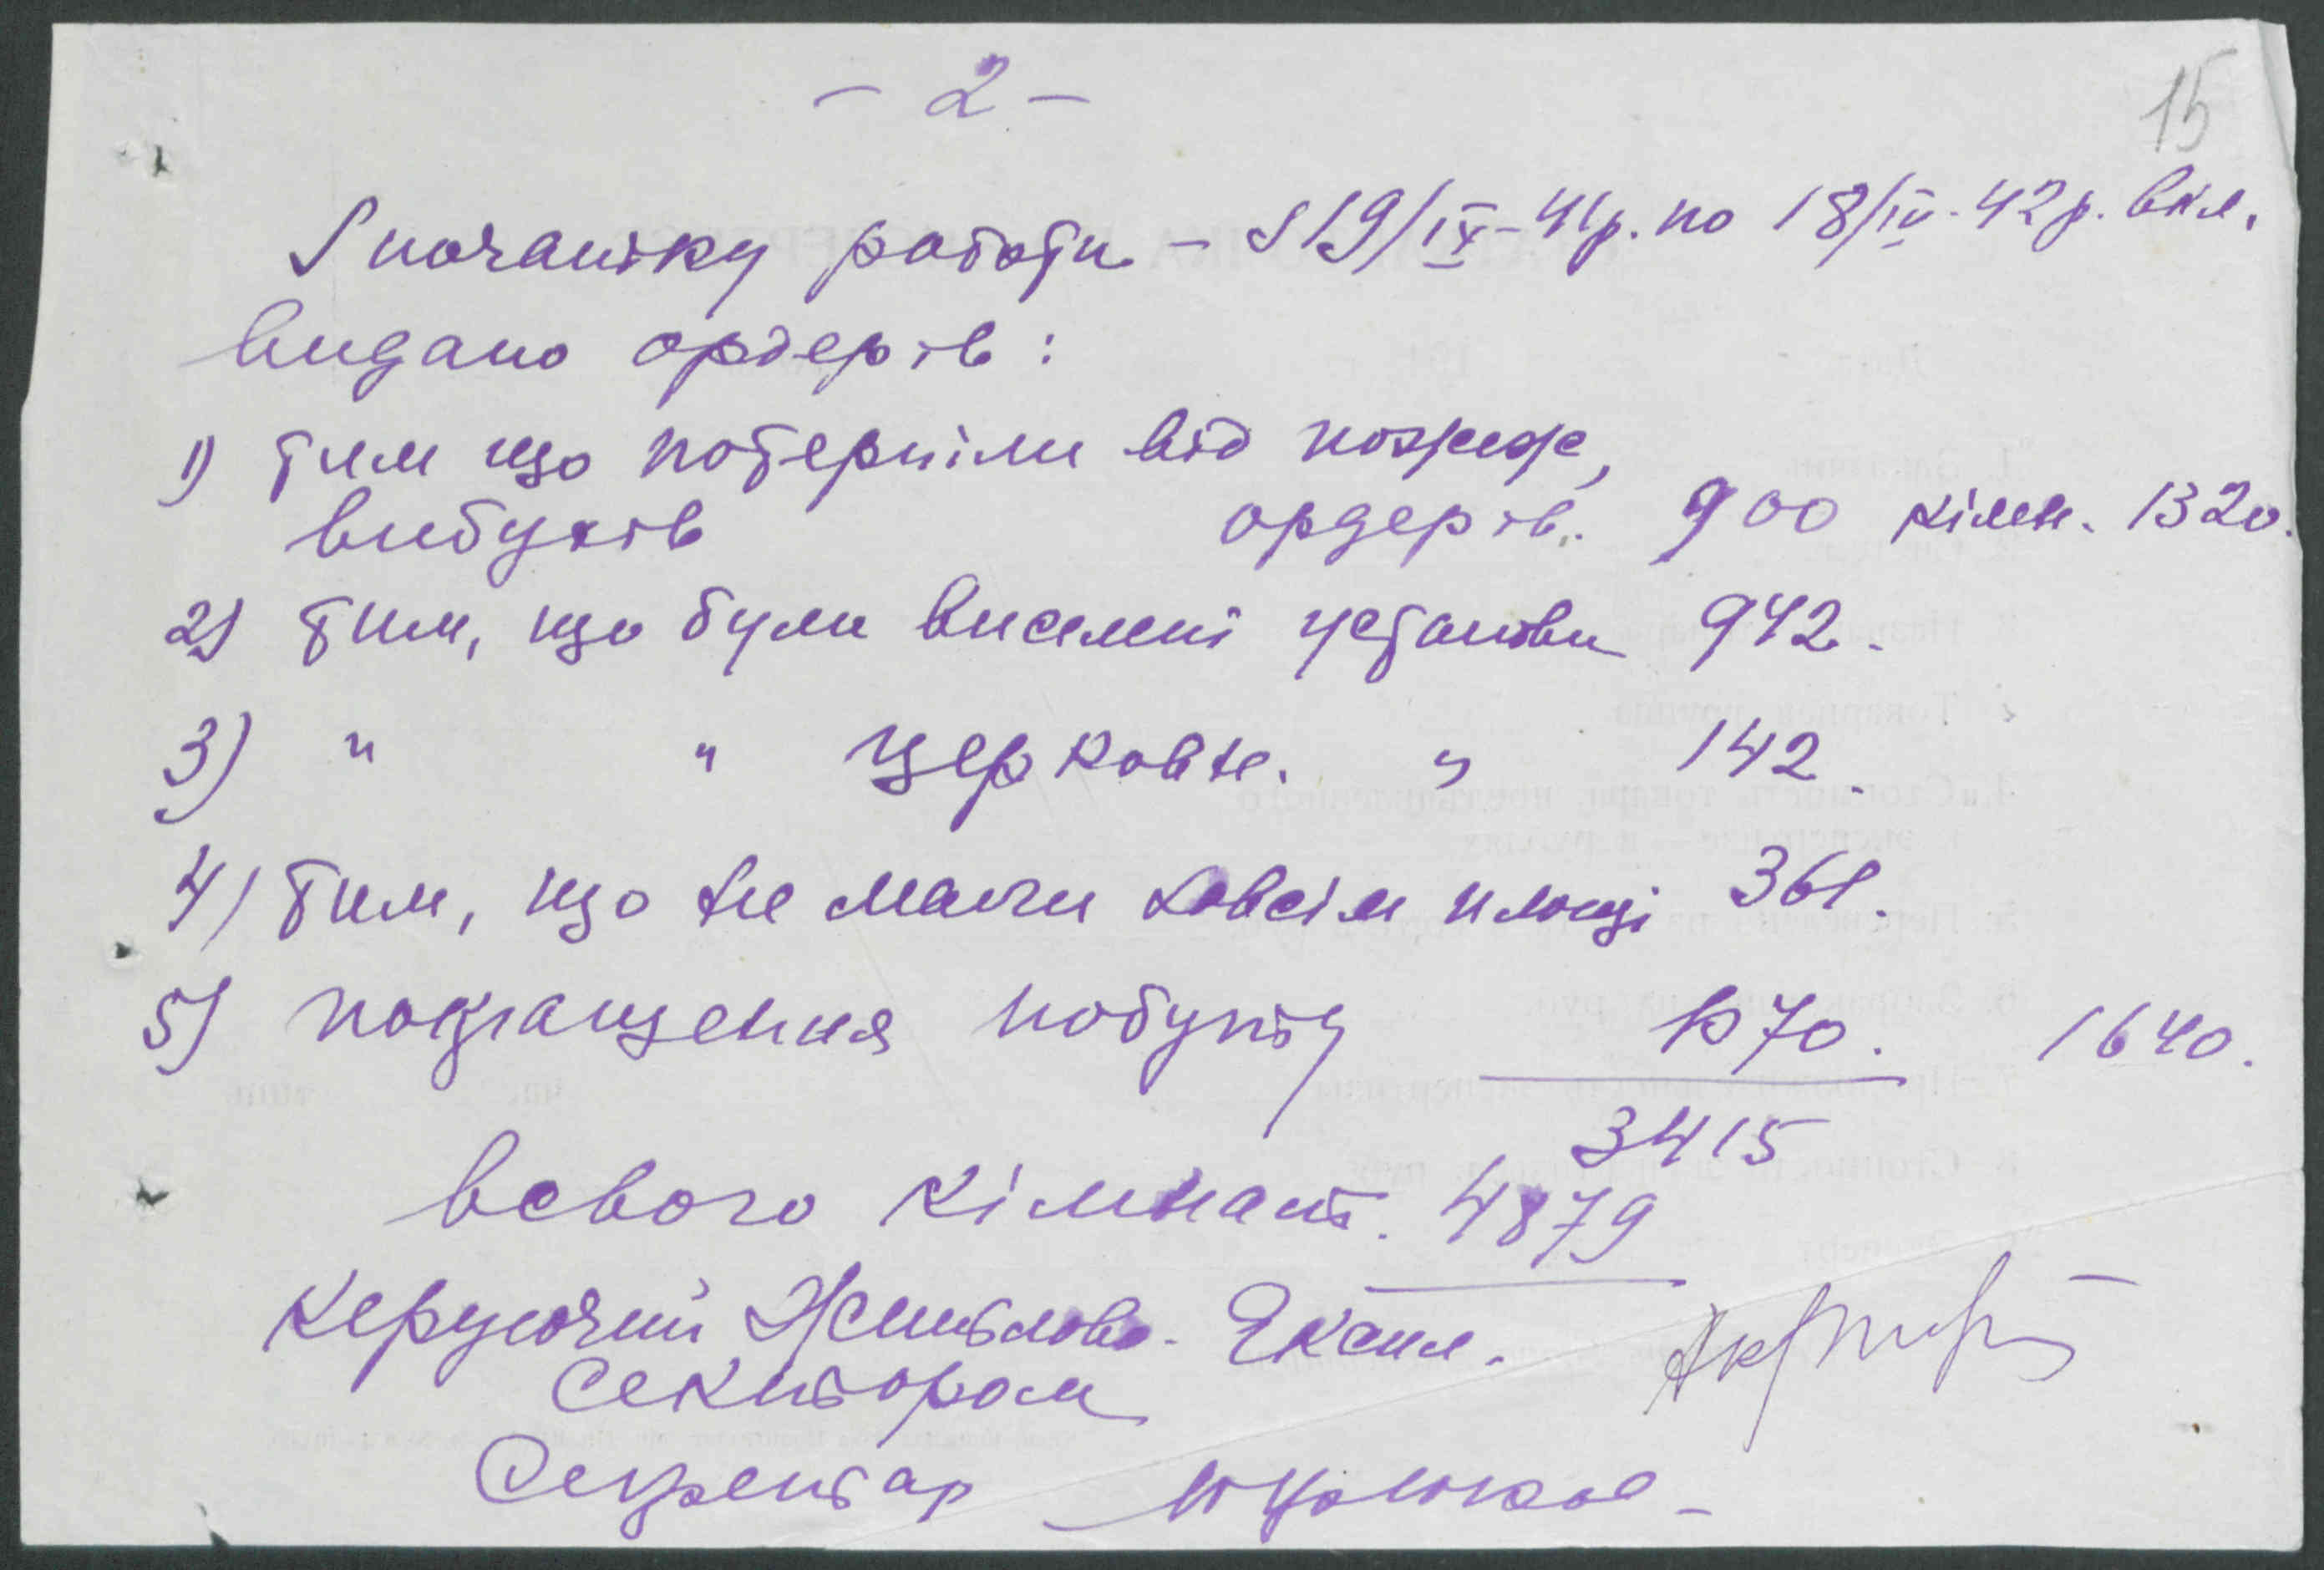 - 2 -
15
З початку роботи - з 19/IX-41р. по 18/IV-42р. вкл.
видано ордерів:
1) тим що потерпіли від пожеж,
вибухів ордерів. 900 кімн. 1320.
2) тим, що були виселені установи 942.
3) " " церковн. " 142.
4) тим, що не мали зовсім площі 361.
5) покращення побуту 1070. 1640.
3415
всього кімнат. 4879
Керуючий Житлово-Експл.
Сектором
Секретар